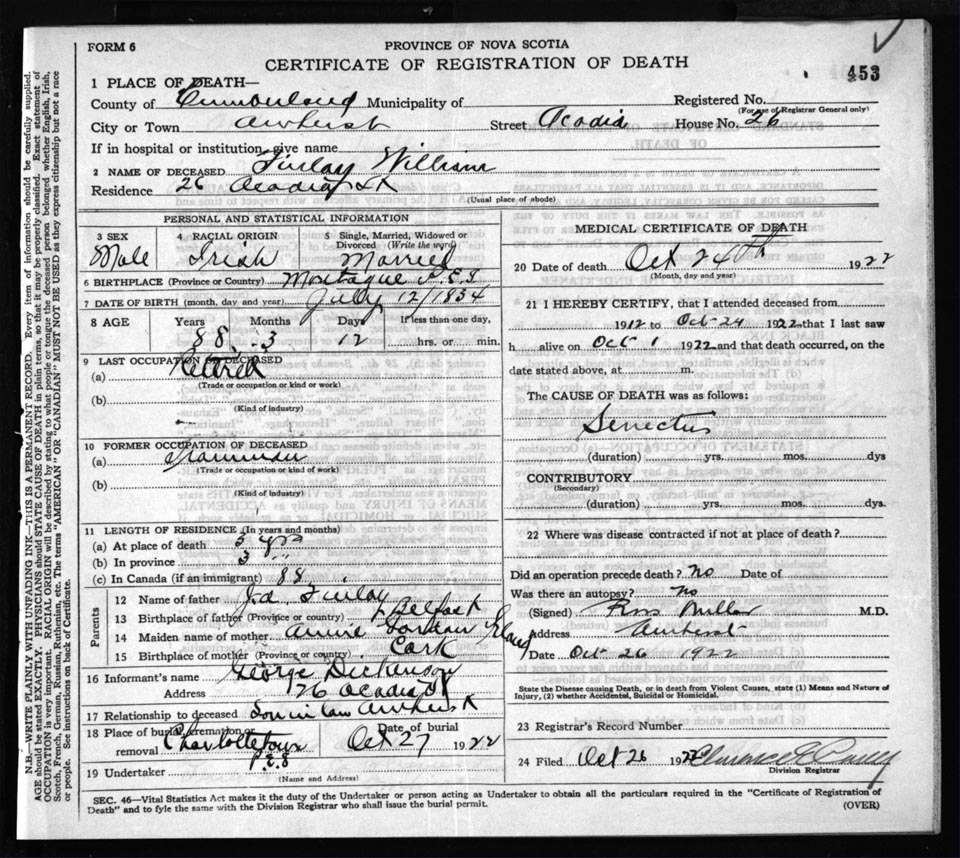 FORM 6
PROVINCE OF NOVA SCOTIA
CERTIFICATE OF REGISTRATION OF DEATH
453
1 PLACE OF DEATH—
County of Cumberland Municipality of Registered No.
(For use of Registrar General only)
City or Town Amherst Street Acadia House No. 26
If in hospital or institution, give name
2 NAME OF DECEASED Finlay William
Residence 26 Acadia St
(Usual place of abode)
PERSONAL AND STATISTICAL INFORMATION
3 SEX 4 RACIAL ORIGIN 5 Single, Married, Widowed or Divorced (Write the word)
Male Irish Married
6 BIRTHPLACE (Province or Country) Montague P.E.I
7 DATE OF BIRTH (month, day and year) July 12/1834
8 AGE Years Months Days If less than one day,
88 3 12 hrs. or min.
9 LAST OCCUPATION OF DECEASED
(a) Retired
(Trade or occupation or kind or work)
(b)
(Kind of industry)
10 FORMER OCCUPATION OF DECEASED
(a)
(Trade or occupation or kind of work)
(b)
(Kind of industry)
11 LENGTH OF RESIDENCE (In years and months)
(a) At place of death 5 yrs
(b) In province 3 ""
(c) In Canada (if an immigrant) 88
Parents
12 Name of father Finlay
13 Birthplace of father (Province or country) Belfast
14 Maiden name of mother Annie
15 Birthplace of mother (Province or country) Cork
16 Informant's name George Dickinson
Address 26 Acadia St
17 Relationship to deceased Son in law Amherst
18 Place of burial, cremation or removal Charlottetown P.E.I Date of burial Oct 27 1922
19 Undertaker
(Name and Address)
MEDICAL CERTIFICATE OF DEATH
20 Date of death Oct 24th 1922
(Month, day and year)
21 I HEREBY CERTIFY, that I attended deceased from
1912 to Oct 24 1922 that I last saw
h alive on Oct 1 1922 and that death occurred, on the
date stated above, at m.
The CAUSE OF DEATH was as follows:
Senectus
(duration) yrs. mos. dys
CONTRIBUTORY
(Secondary)
(duration) yrs. mos. dys.
22 Where was disease contracted if not at place of death?
Did an operation precede death? No Date of
Was there an autopsy? No
(Signed) Ross Millar M.D.
Address Amherst
Date Oct 26 1922
State the Disease causing Death, or in death from Violent Causes, state (1) Means and Nature of
Injury, (2) whether Accidental, Suicidal or Homicidal.
23 Registrar's Record Number
24 Filed Oct 26 1922
Division Registrar
SEC. 46—Vital Statistics Act makes it the duty of the Undertaker or person acting as Undertaker to obtain all the particulars required in the "Certificate of Registration of
Death" and to fyle the same with the Division Registrar who shall issue the burial permit.
(OVER)
N.B.—WRITE PLAINLY WITH UNFADING INK—THIS IS A PERMANENT RECORD. Every item of information should be carefully supplied.
AGE should be stated EXACTLY. PHYSICIANS should STATE CAUSE OF DEATH in plain terms, so that it may be properly classified. Exact statement of
OCCUPATION is very important. RACIAL ORIGIN will be described by stating to what people or tongue the deceased person belonged, whether English, Irish,
Scotch, French, German, Russian, Ruthenian, etc. The terms "AMERICAN" OR "CANADIAN" MUST NOT BE USED as they express citizenship but not a race
or people. See instructions on back of Certificate.